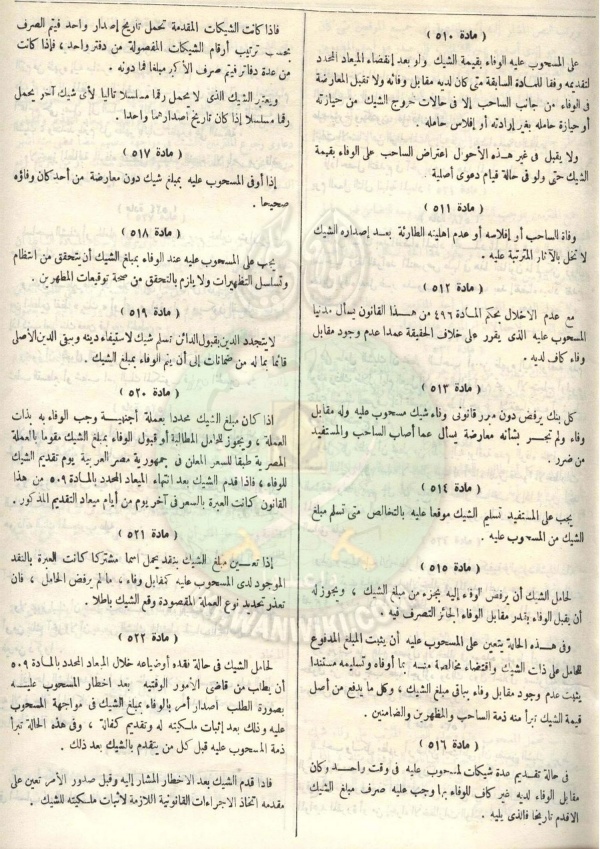 ( مادة ٥١٠ )
على المسحوب عليه الوفاء بقيمة الشيك ولو بعد إنقضاء الميعاد المحدد
لتقديمه وفقا للمادة السابقة متى كان لديه مقابل وفائه ولا تقبل المعارضة
فى الوفاء من جانب الساحب إلا فى حالات خروج الشيك من حيازته
أو حيازة حامله بغير إرادته أو إفلاس حامله .
ولا يقبل فى غير هذه الأحوال اعتراض الساحب على الوفاء بقيمة
الشيك حتى ولو فى حالة قيام دعوى أصلية .
( مادة ٥١١ )
وفاة الساحب أو إفلاسه أو عدم اهليته الطارئة بعد إصداره الشيك
لا تخل بالآثار المترتبة عليه .
( مادة ٥١٢ )
مع عدم الاخلال بحكم المادة ٤٩٦ من هذا القانون يسأل مدنيا
المسحوب عليه الذى يقرر على خلاف الحقيقة عمدا عدم وجود مقابل
وفاء كاف لديه .
( مادة ٥١٣ )
كل بنك يرفض دون مبرر قانونى وفاء شيك مسحوب عليه وله مقابل
وفاء ولم تجر بشأنه معارضة يسأل عما أصاب الساحب والمستفيد
من ضرر .
( مادة ٥١٤ )
يجب على المستفيد تسليم الشيك موقعا عليه بالتخالص متى تسلم مبلغ
الشيك من المسحوب عليه .
( مادة ٥١٥ )
لحامل الشيك أن يرفض الوفاء إليه بجزء من مبلغ الشيك ، ويجوز له
أن يقبل الوفاء بقدر مقابل الوفاء الجائز التصرف فيه .
وفى هذه الحالة يتعين على المسحوب عليه أن يثبت المبلغ المدفوع
للحامل على ذات الشيك واقتضاء مخالصة منه بما أوفاه وتسليمه مستندا
يثبت عدم وجود مقابل وفاء بباقى مبلغ الشيك ، وكل ما يدفع من أصل
قيمة الشيك تبرأ منه ذمة الساحب والمظهرين والضامنين .
( مادة ٥١٦ )
فى حالة تقديم عدة شيكات لمسحوب عليه فى وقت واحد وكان
مقابل الوفاء لديه غير كاف للوفاء بها وجب عليه صرف مبلغ الشيك
الاقدم تاريخا فالذى يليه .
فاذا كانت الشيكات المقدمة تحمل تاريخ إصدار واحد فيتم الصرف
بحسب ترتيب أرقام الشيكات المفصولة من دفتر واحد ، فإذا كانت
من عدة دفاتر فيتم صرف الأكبر مبلغا فما دونه .
ويعتبر الشيك الذى لا يحمل رقما مسلسلا تاليا لأى شيك آخر يحمل
رقما مسلسلا إذا كان تاريخ أصدارهما واحدا .
( مادة ٥١٧ )
إذا أوفى المسحوب عليه بمبلغ شيك دون معارضة من أحد كان وفاؤه
صحيحا .
( مادة ٥١٨ )
يجب على المسحوب عليه عند الوفاء بمبلغ الشيك أن يتحقق من انتظام
وتسلسل التظهيرات ولا يلزم بالتحقق من صحة توقيعات المظهرين .
( مادة ٥١٩ )
لا يتجدد الدين بقبول الدائن تسلم شيك لاستيفاء دينه ويبقى الدين الأصلى
قائما بما له من ضمانات إلى أن يتم الوفاء بمبلغ الشيك .
( مادة ٥٢٠ )
اذا كان مبلغ الشيك محددا بعملة أجنبية وجب الوفاء به بذات
العملة ، ويجوز للحامل المطالبة أو قبول الوفاء بمبلغ الشيك مقوما بالعملة
المصرية طبقا للسعر المعلن فى جمهورية مصر العربية يوم تقديم الشيك
للوفاء ، فاذا قدم الشيك بعد انتهاء الميعاد المحدد بالمادة ٥٠٩ من هذا
القانون كانت العبرة بالسعر فى آخر يوم من أيام ميعاد التقديم المذكور .
( مادة ٥٢١ )
إذا تعين مبلغ الشيك بنقد يحمل اسما مشتركا كانت العبرة بالنقد
الموجود لدى المسحوب عليه كمقابل وفاء ، ما لم يرفض الحامل ، فان
تعذر تحديد نوع العملة المقصودة وقع الشيك باطلا .
( مادة ٥٢٢ )
لحامل الشيك فى حالة فقده أو ضياعه خلال الميعاد المحدد بالمادة ٥٠٩
أن يطلب من قاضى الأمور الوقتية بعد اخطار المسحوب عليه
بصورة الطلب أصدار أمر بالوفاء بمبلغ الشيك فى مواجهة المسحوب
عليه وذلك بعد إثبات ملكيته له وتقديم كفالة ، وفى هذه الحالة تبرأ
ذمة المسحوب عليه قبل كل من يتقدم بالشيك بعد ذلك .
فاذا قدم الشيك بعد الاخطار المشار إليه وقبل صدور الأمر تعين على
مقدمه اتخاذ الاجراءات القانونية اللازمة لاثبات ملكسيته للشيك .